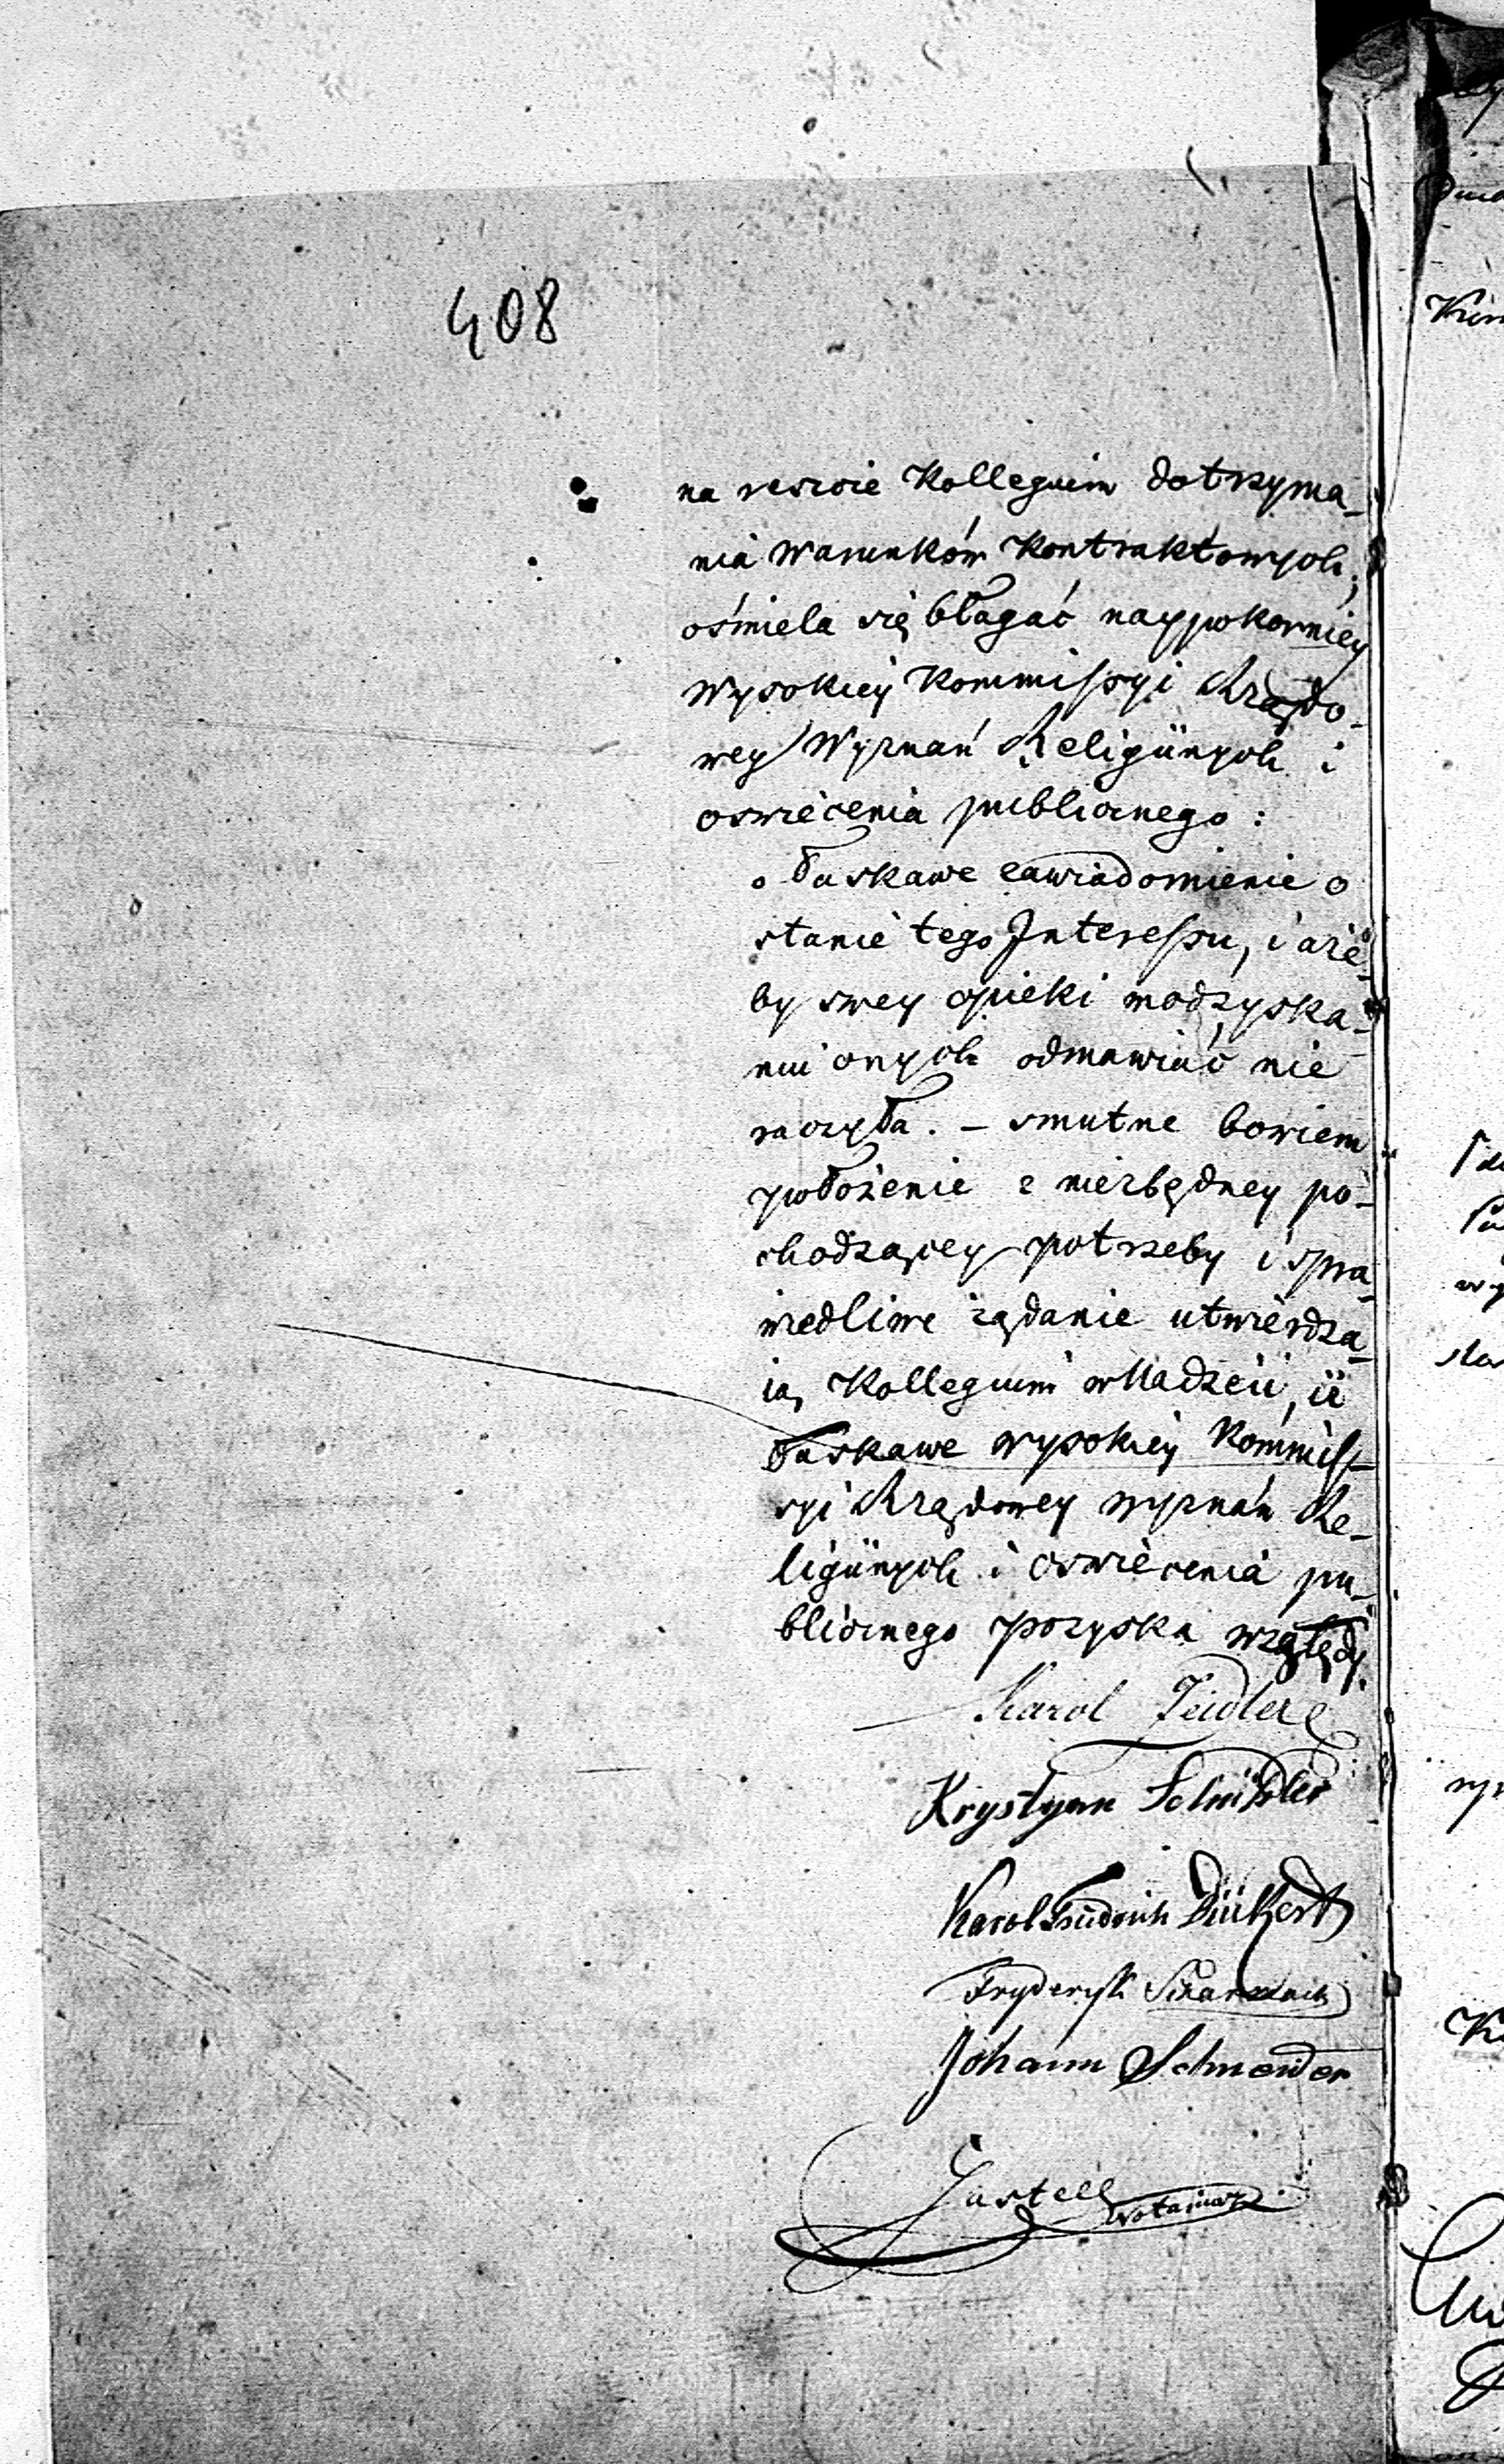 408
na resscie Kollegium dotrzyma-
nia warunków Kontraktowych,
ośmiela się błagać naypokorniey
Wysokiey Kommissyi Rządo-
wey Wyznań Religiinych i
oswiecenia publicznego :
o łaskawe zawiadomienie o
stanie tego Interessu, i aże-
by swey opieki w odzyska-
niu onych odmawiać nie
raczyła. – smutne bowiem
położenie z niezbędney po-
chodzącey potrzeby i spra-
wiedliwe żądanie utwierdza-
ią Kollegium w nadzieii, iż
łaskawe wysokiey Kommis-
syi Rządowey wyznań Re-
ligiinych i oswiecenia pu-
blicznego pozyska względy.
Karol Zeidler
Krystyan Schindler
Karol Friedrich
Fryderyk
Johann Schneider
Gastell Notariusz